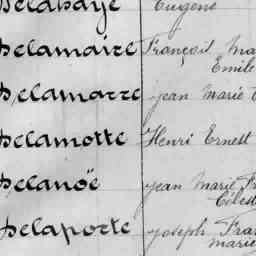 Delahaye Eugène
Delamaire François Ma
Emile
Delamarre Jean Marie
Delamotte Henri Ernest
Delanoë Jean Marie Fr
Célest
Delaporte Joseph Fra
Marie